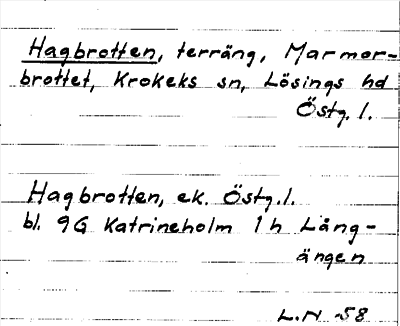 Hagbrotten, terräng, Marmor-
brottet, Krokeks sn, Lösings hd
Östg. l.
Hagbrotten, ek. Östg. l.
bl. 9G Katrineholm 1h Lång-
ängen
L.N -58